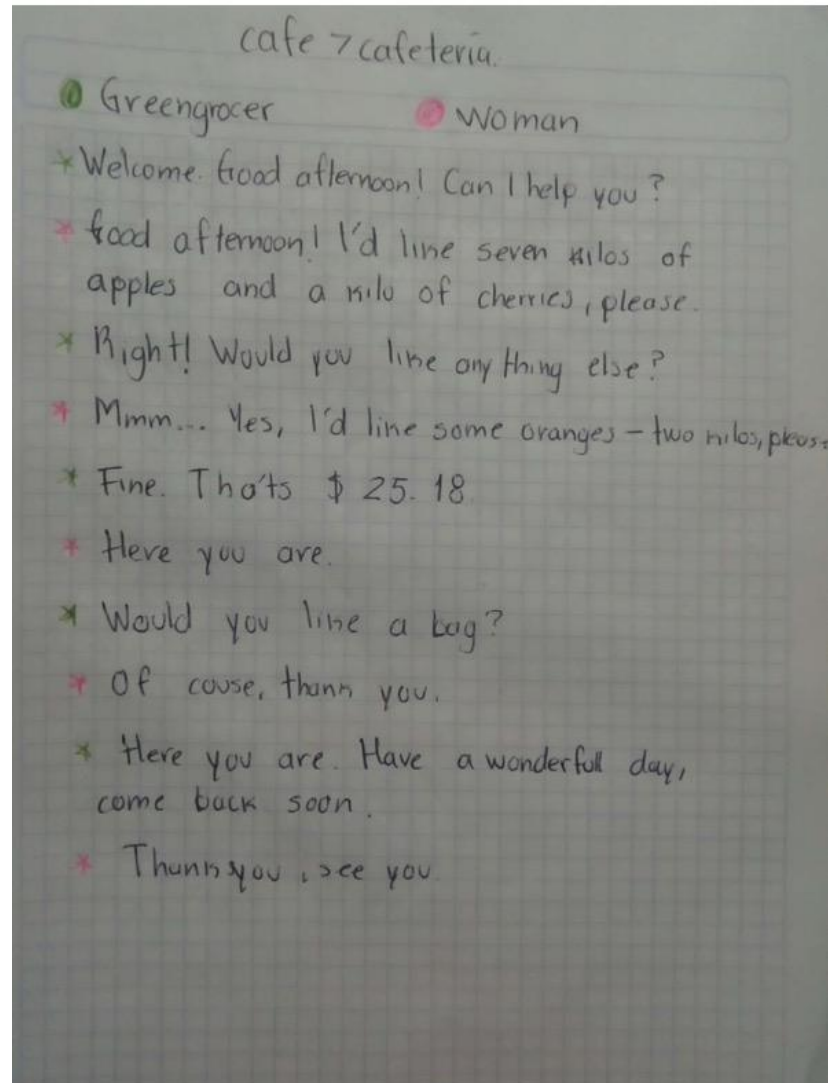 cafe > cafeteria.
Greengrocer Woman
* Welcome. Good afternoon! Can I help you?
* Good afternoon! I'd like seven kilos of
apples and a kilo of cherries, please.
* Right! Would you like any thing else?
* Mmm... Yes, I'd like some oranges - two kilos, please
* Fine. Tha'ts $ 25. 18.
* Here you are.
* Would you like a bag?
* Of couse, thank you.
* Here you are. Have a wonderfull day,
come back soon.
* Thank you, see you.